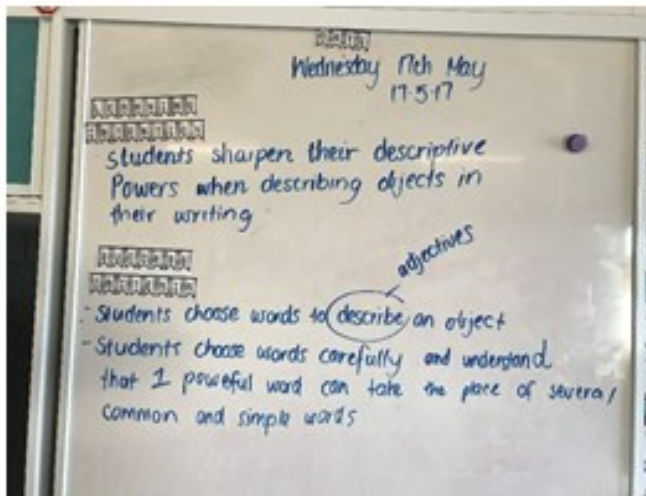 Wednesday 17th May
17.5.17
students sharpen their descriptive
Powers when describing objects in
their writing
adjectives
- Students choose words to describe an object
- Students choose words carefully and understand
that 1 poweful word can take the place of several
common and simple words